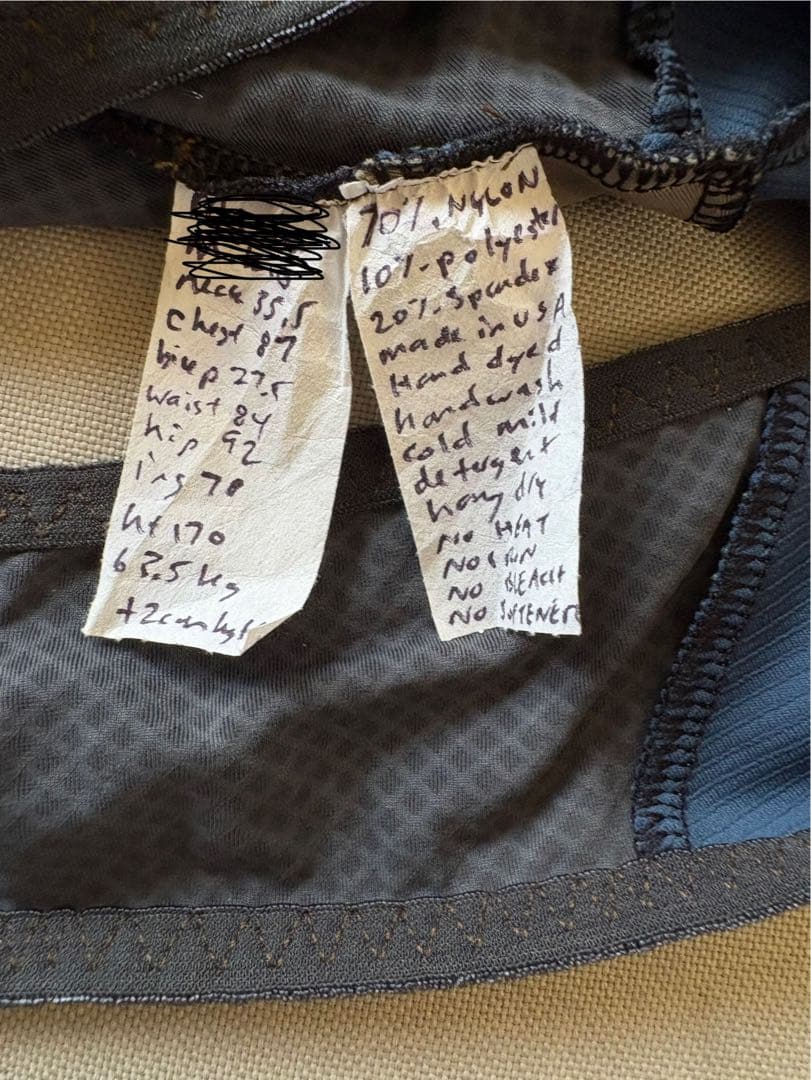 neck 35.5
chest 87
bicep 27.5
waist 84
hip 92
ins 78
ht 170
63.5 kg
+2cm
70% NYLON
10% polyester
20% spandex
made in USA
Hand dyed
handwash
cold mild
detergent
hang dry
NO HEAT
NO SUN
NO BLEACH
NO SOFTENER